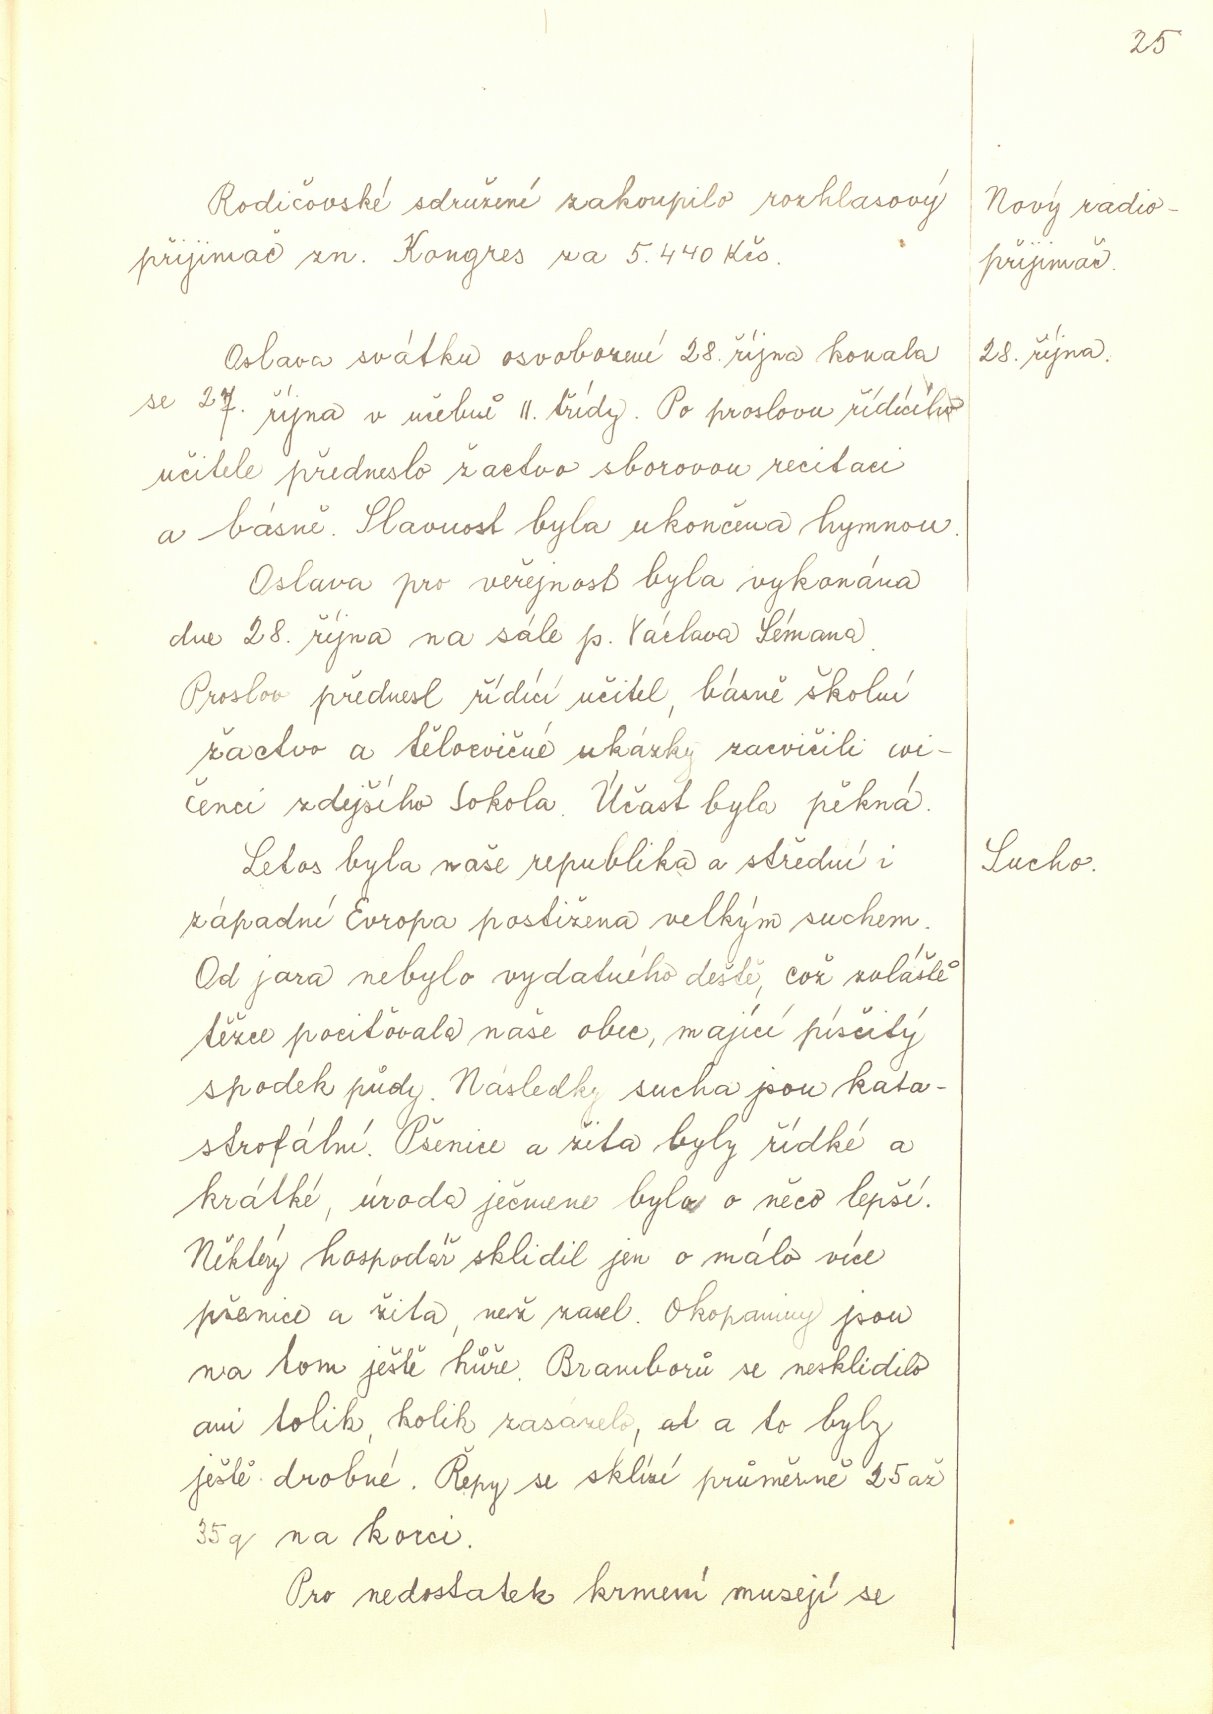 25
Rodičovské sdružení zakoupilo rozhlasový
přijimač zn. Kongres za 5.440 Kčs.
Nový radio-
přijimač.
Oslava svátku osvobození 28. října konala
se 27. října v učebně II. třídy. Po proslovu řídícího
učitele předneslo žactvo sborovou recitaci
a básně. Slavnost byla ukončena hymnou.
28. října.
Oslava pro veřejnost byla vykonána
dne 28. října na sále p. Václava Lémana.
Proslov přednesl řídící učitel, básně školní
žactvo a tělocvičné ukázky zacvičili cvi-
čenci zdejšího Sokola. Účast byla pěkná.
Letos byla naše republika a střední i
západní Evropa postižena velkým suchem.
Od jara nebylo vydatného deště, což zvláště
těžce pociťovala naše obec, mající písčitý
spodek půdy. Následky sucha jsou kata-
strofální. Pšenice a žita byly řídké a
krátké, úroda ječmene byla o něco lepší.
Některý hospodář sklidil jen o málo více
pšenice a žita, než zasel. Okopaniny jsou
na tom ještě hůře. Bramborů se nesklidilo
ani tolik, kolik zasázelo, at a to byly
ještě drobné. Řepy se sklízí průměrně 25 až
35 q na korci.
Pro nedostatek krmení musejí se
Sucho.